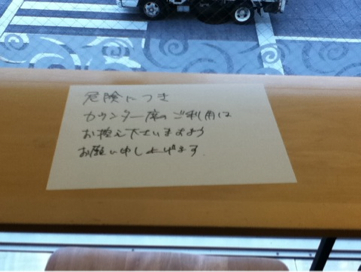 危険につき
カウンター席のご利用は
お控え下さいますよう
お願い申し上げます